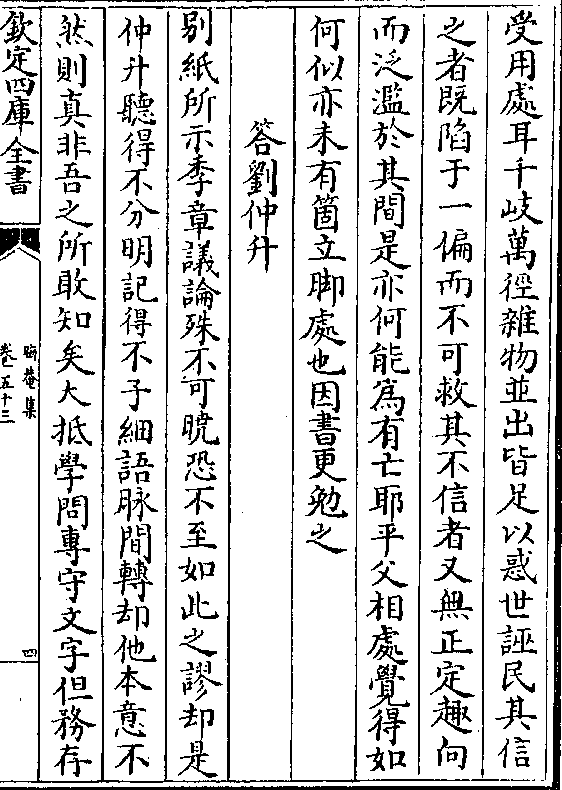 受用處耳千岐萬徑雜物並出皆足以惑世誣民其信
之者既陷于一偏而不可救其不信者又無正定趣向
而泛濫於其間是亦何能為有亡耶平父相處覺得如
何似亦未有箇立脚處也因書更勉之
答劉仲升
别紙所示季章議論殊不可曉恐不至如此之謬却是
仲升聽得不分明記得不子細語脉間轉却他本意不
然則真非吾之所敢知矣大抵學問專守文字但務存
欽定四庫全書
晦菴集
卷五十三
四